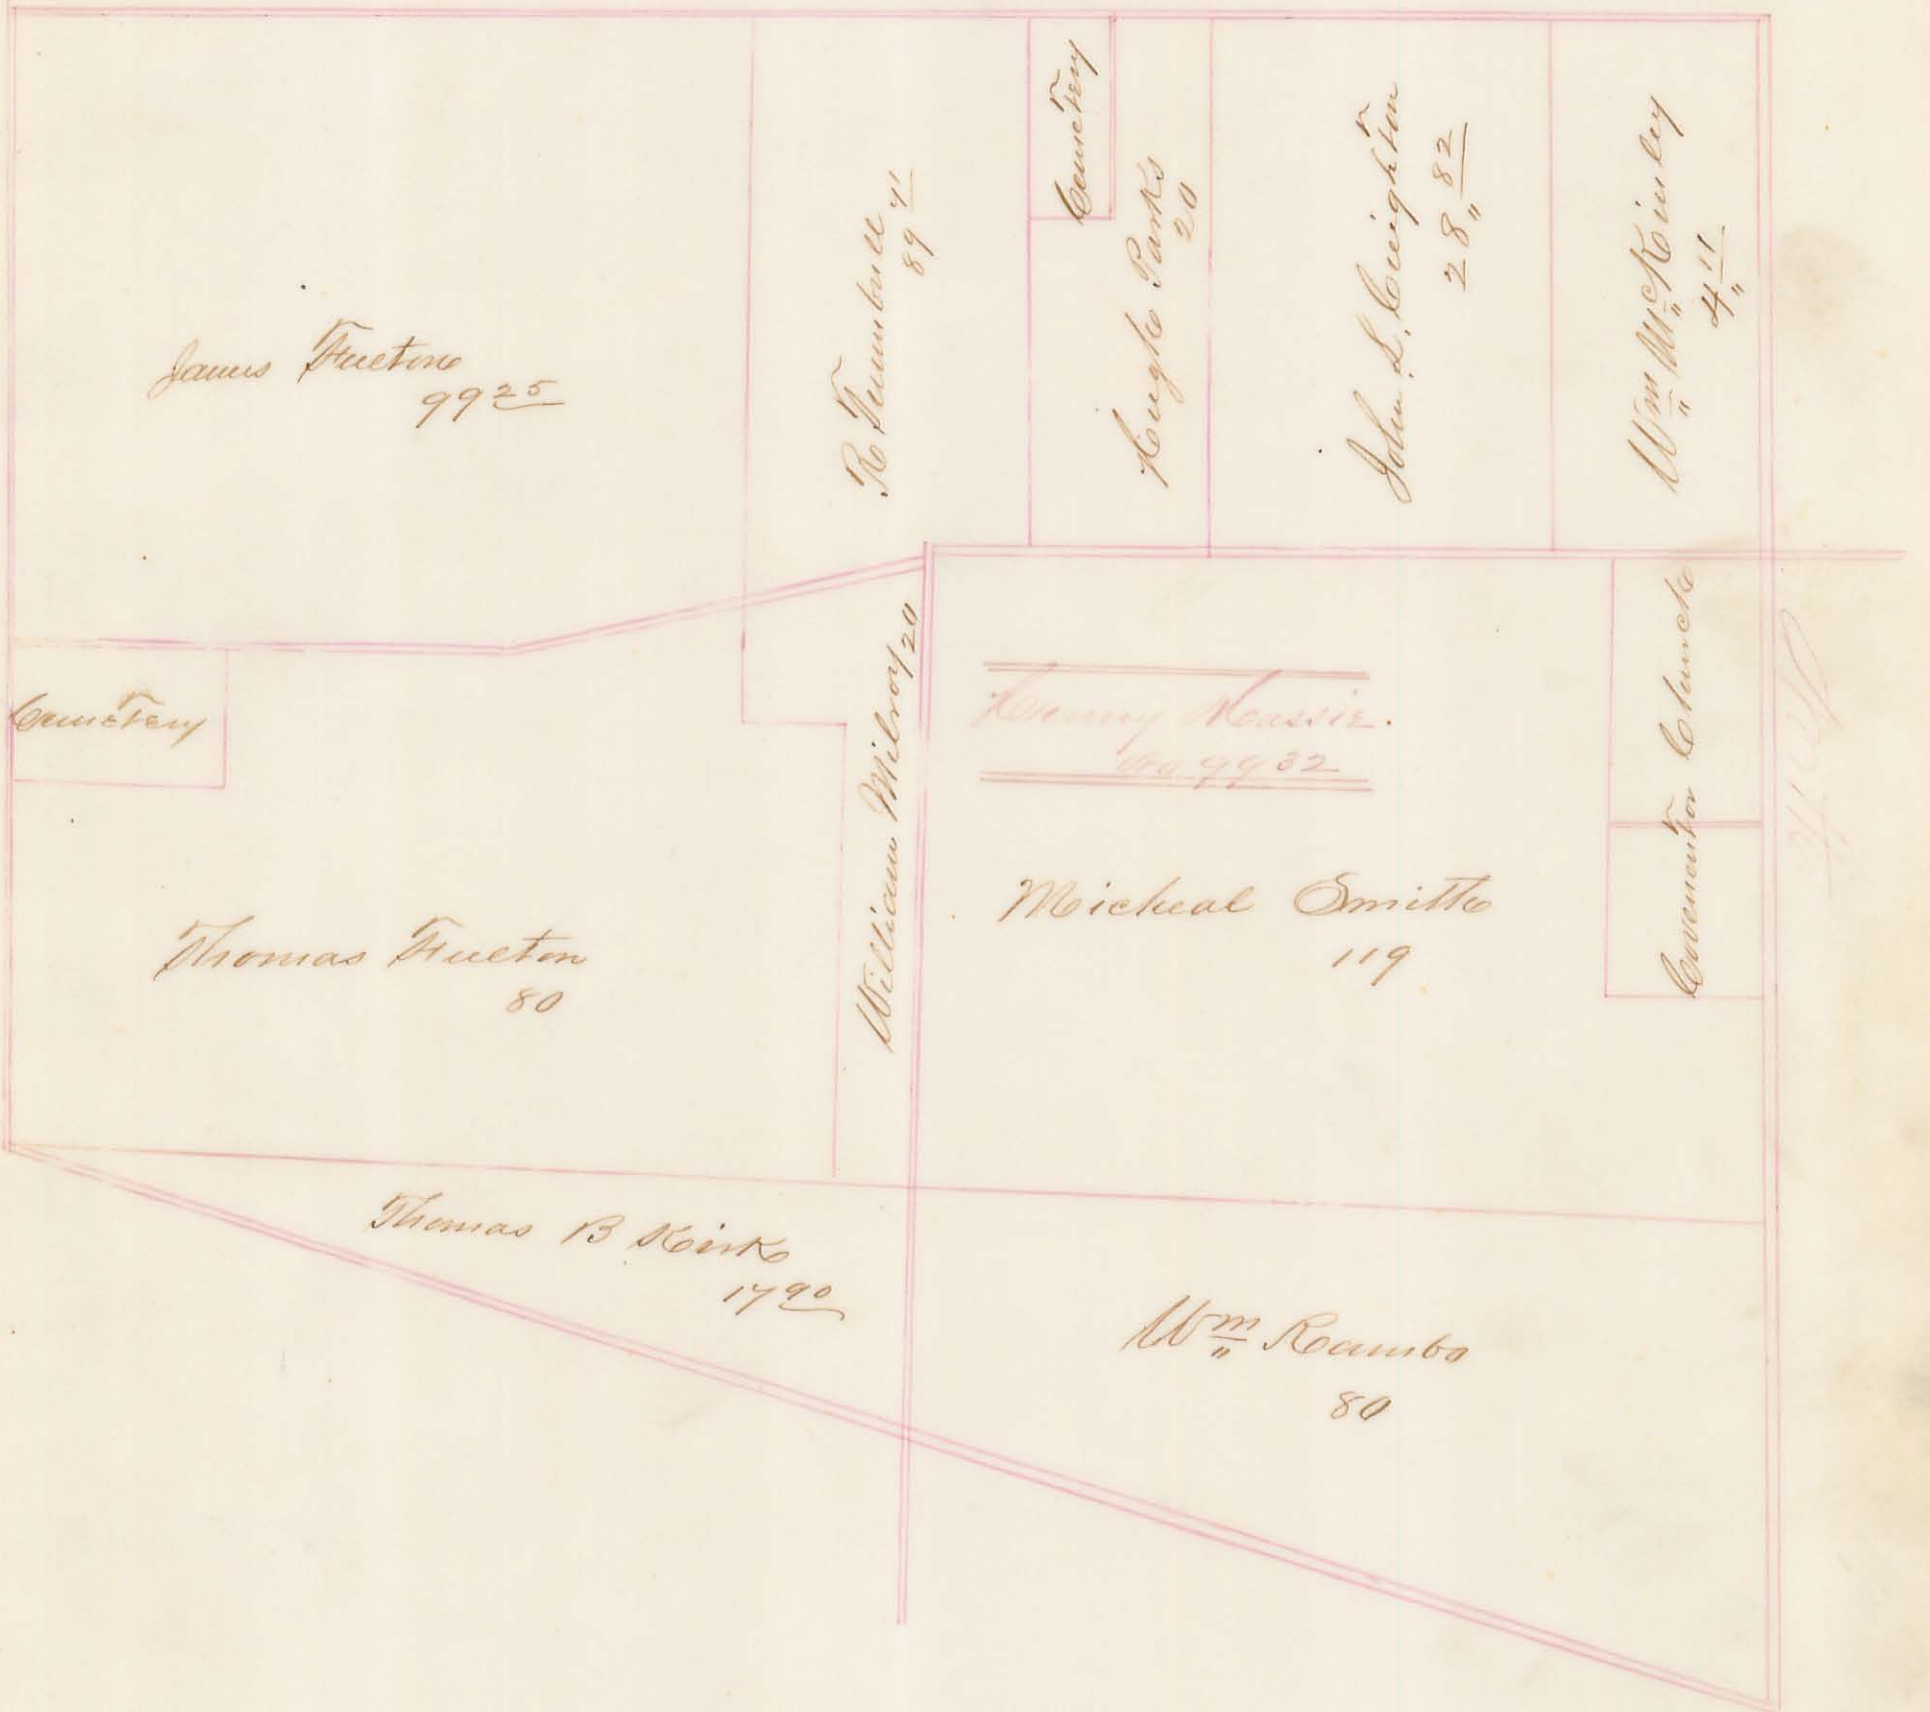 James Fulton
99 25
R Turnbull
89 41
Cemetery
Hugh Parks
20
John L. Creighton
28 82
Wm McKinley
4 11
Cemetery
William Milroy 20
Henny Massie.
No 9932
Covenantor Church
Thomas Fulton
80
Micheal Smith
119
Thomas B Kirk
17 90
Wm Rambo
80